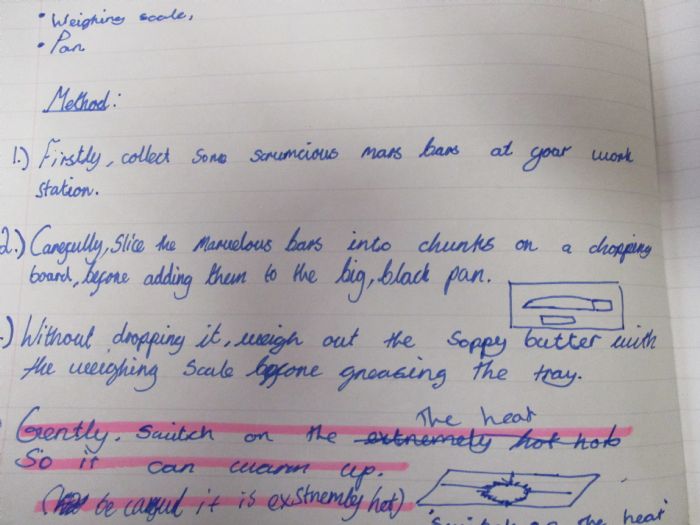 • Weighing scale,
• Pan
Method:
1.) Firstly, collect some scrumcious mars bars at your work
station.
2.) Carefully, Slice the Marvelous bars into chunks on a chopping
board, before adding them to the big, black pan.
.) Without dropping it, weigh out the Soppy butter with
the weighing scale before greasing the tray.
The heat
Gently, Switch on the extremely hot hob
So it can warm up.
( be careful it is exstremley hot)
the heat